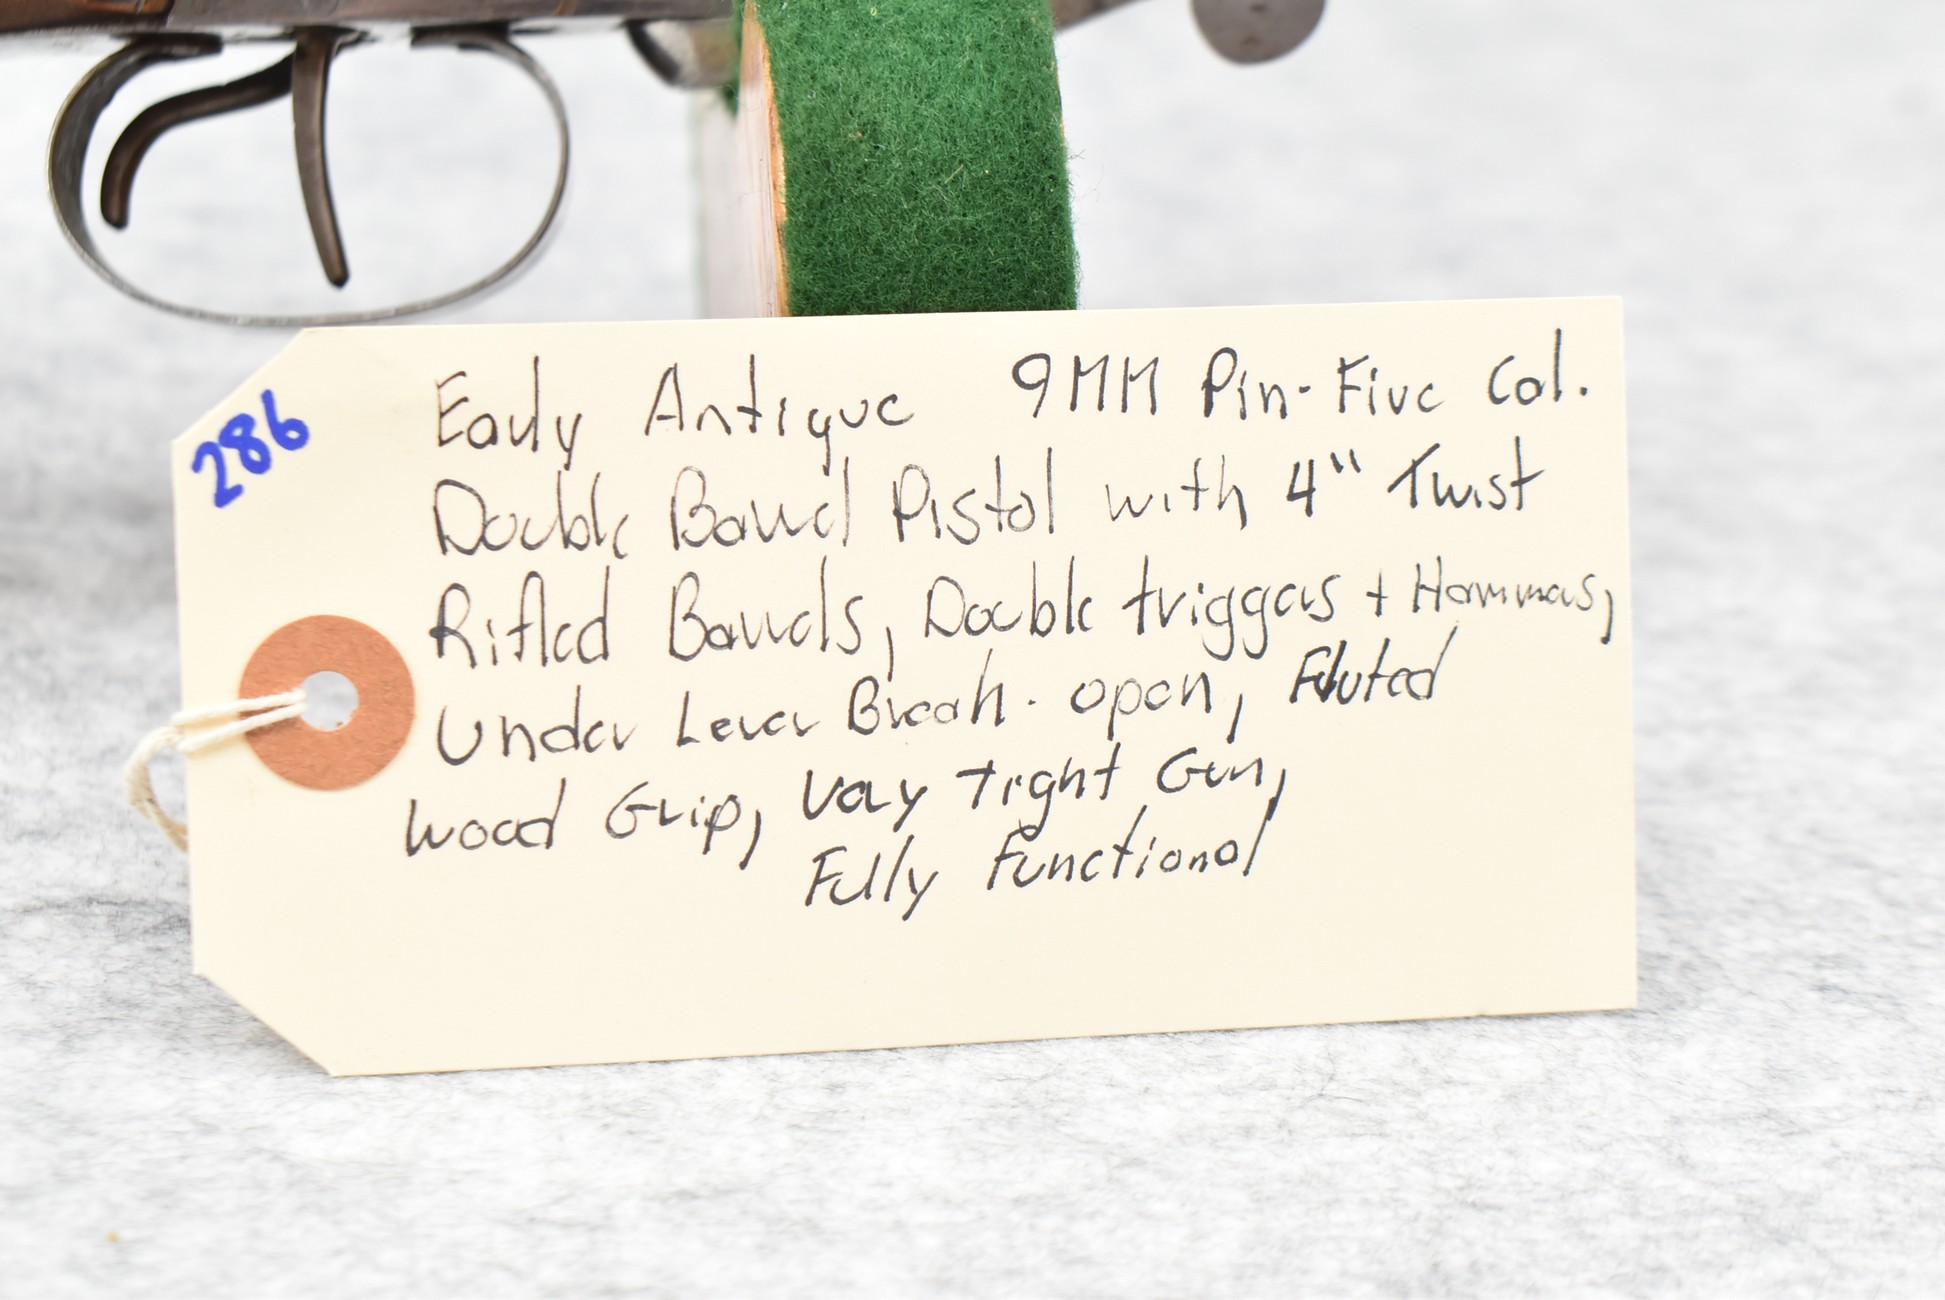 286
Early Antique 9MM Pin-Fire Cal.
Double Barrel Pistol with 4" Twist
Rifled Barrels, Double triggers + Hammers,
Under Lever Break-open, Fluted
wood Grip, Very Tight Gun,
Fully Functional